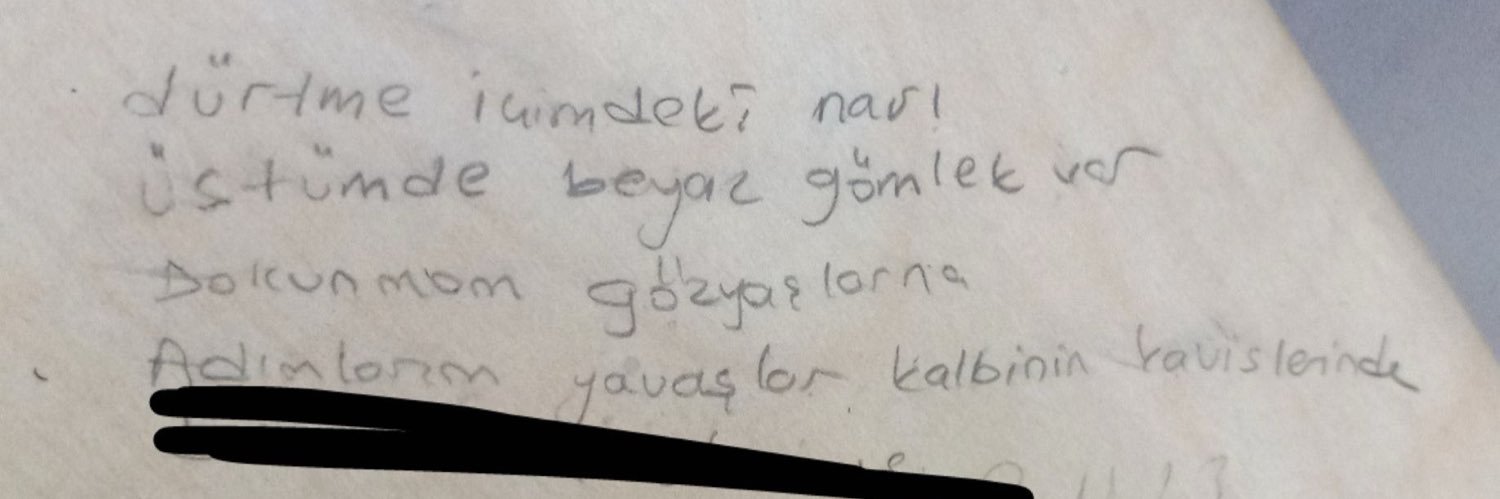 dürtme içimdeki narı
üstümde beyaz gömlek var
Dokunmam gözyaşlarna
Adımlarım yavaşlar kalbinin kavislerinde